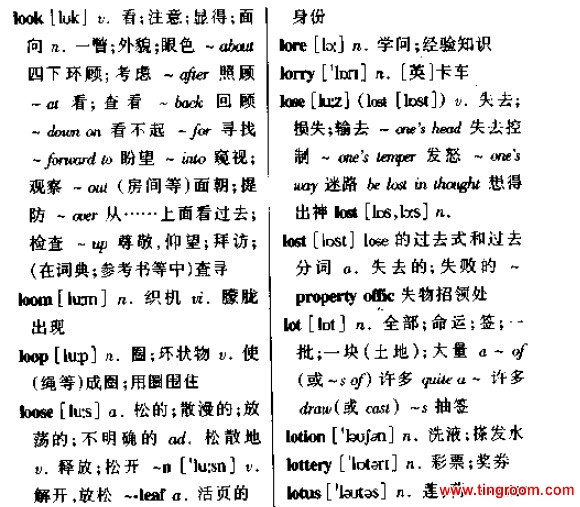 look [luk] v. 看;注意;显得;面
向 n. 一瞥;外貌;眼色 ~ about
四下环顾;考虑 ~ after 照顾
~ at 看;查看 ~ back 回顾
~ down on 看不起 ~ for 寻找
~ forward to 盼望 ~ into 窥视;
观察 ~ out (房间等)面朝;提
防 ~ over 从……上面看过去;
检查 ~ up 尊敬,仰望;拜访;
(在词典;参考书等中)查寻
loom [lu:m] n. 织机 vi. 朦胧
出现
loop [lu:p] n. 圈;环状物 v. 使
(绳等)成圈;用圈围住
loose [lu:s] a. 松的;散漫的;放
荡的;不明确的 ad. 松散地
v. 释放;松开 ~n ['lu:sn] v.
解开,放松 ~-leaf a. 活页的
身份
lore [lɔ:] n. 学问;经验知识
lorry ['lɔrɪ] n. [英]卡车
lose [lu:z] (lost [lɒst]) v. 失去;
损失;输去 ~ one's head 失去控
制 ~ one's temper 发怒 ~ one's
way 迷路 be lost in thought 想得
出神 lost [lɒs,lɔ:s] n.
lost [lɒst] lose 的过去式和过去
分词 a. 失去的;失败的 ~
property offic 失物招领处
lot [lɒt] n. 全部;命运;签;一
批;一块(土地);大量 a ~ of
(或 ~s of) 许多 quite a ~ 许多
draw(或 cast) ~s 抽签
lotion ['ləuʃən] n. 洗液;搽发水
lottery ['lɒtərɪ] n. 彩票;奖券
lotus ['ləutəs] n. 莲,
www.tingroom.com